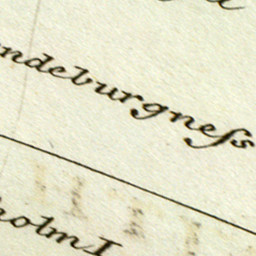 ndeburgneſs
olm I